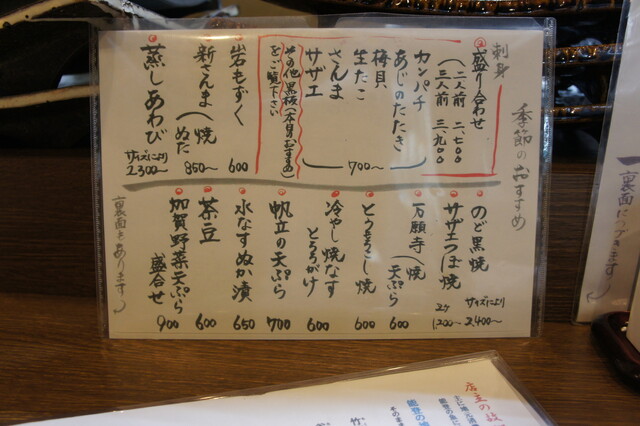 季節のおすすめ
刺身
盛り合わせ
(二人前 二、七〇〇
三人前 三、九〇〇
カンパチ
あじのたたき
梅貝
生たこ
さんま
サザエ
700〜
その他黒板(本日のおすすめ)
をご覧下さい
岩もずく 600
新さんま(焼
ぬた 850〜
蒸しあわび サイズにより 2,300〜
のど黒焼 サイズにより 2,400〜
サザエつぼ焼 1,200〜
万願寺(焼
天ぷら 600
とうもろこし焼 600
冷やし焼なす
とろろがけ 600
帆立の天ぷら 700
水なすぬか漬 650
茶豆 600
加賀野菜天ぷら
盛合せ 900
裏面もあります
裏面につづきます
店主の